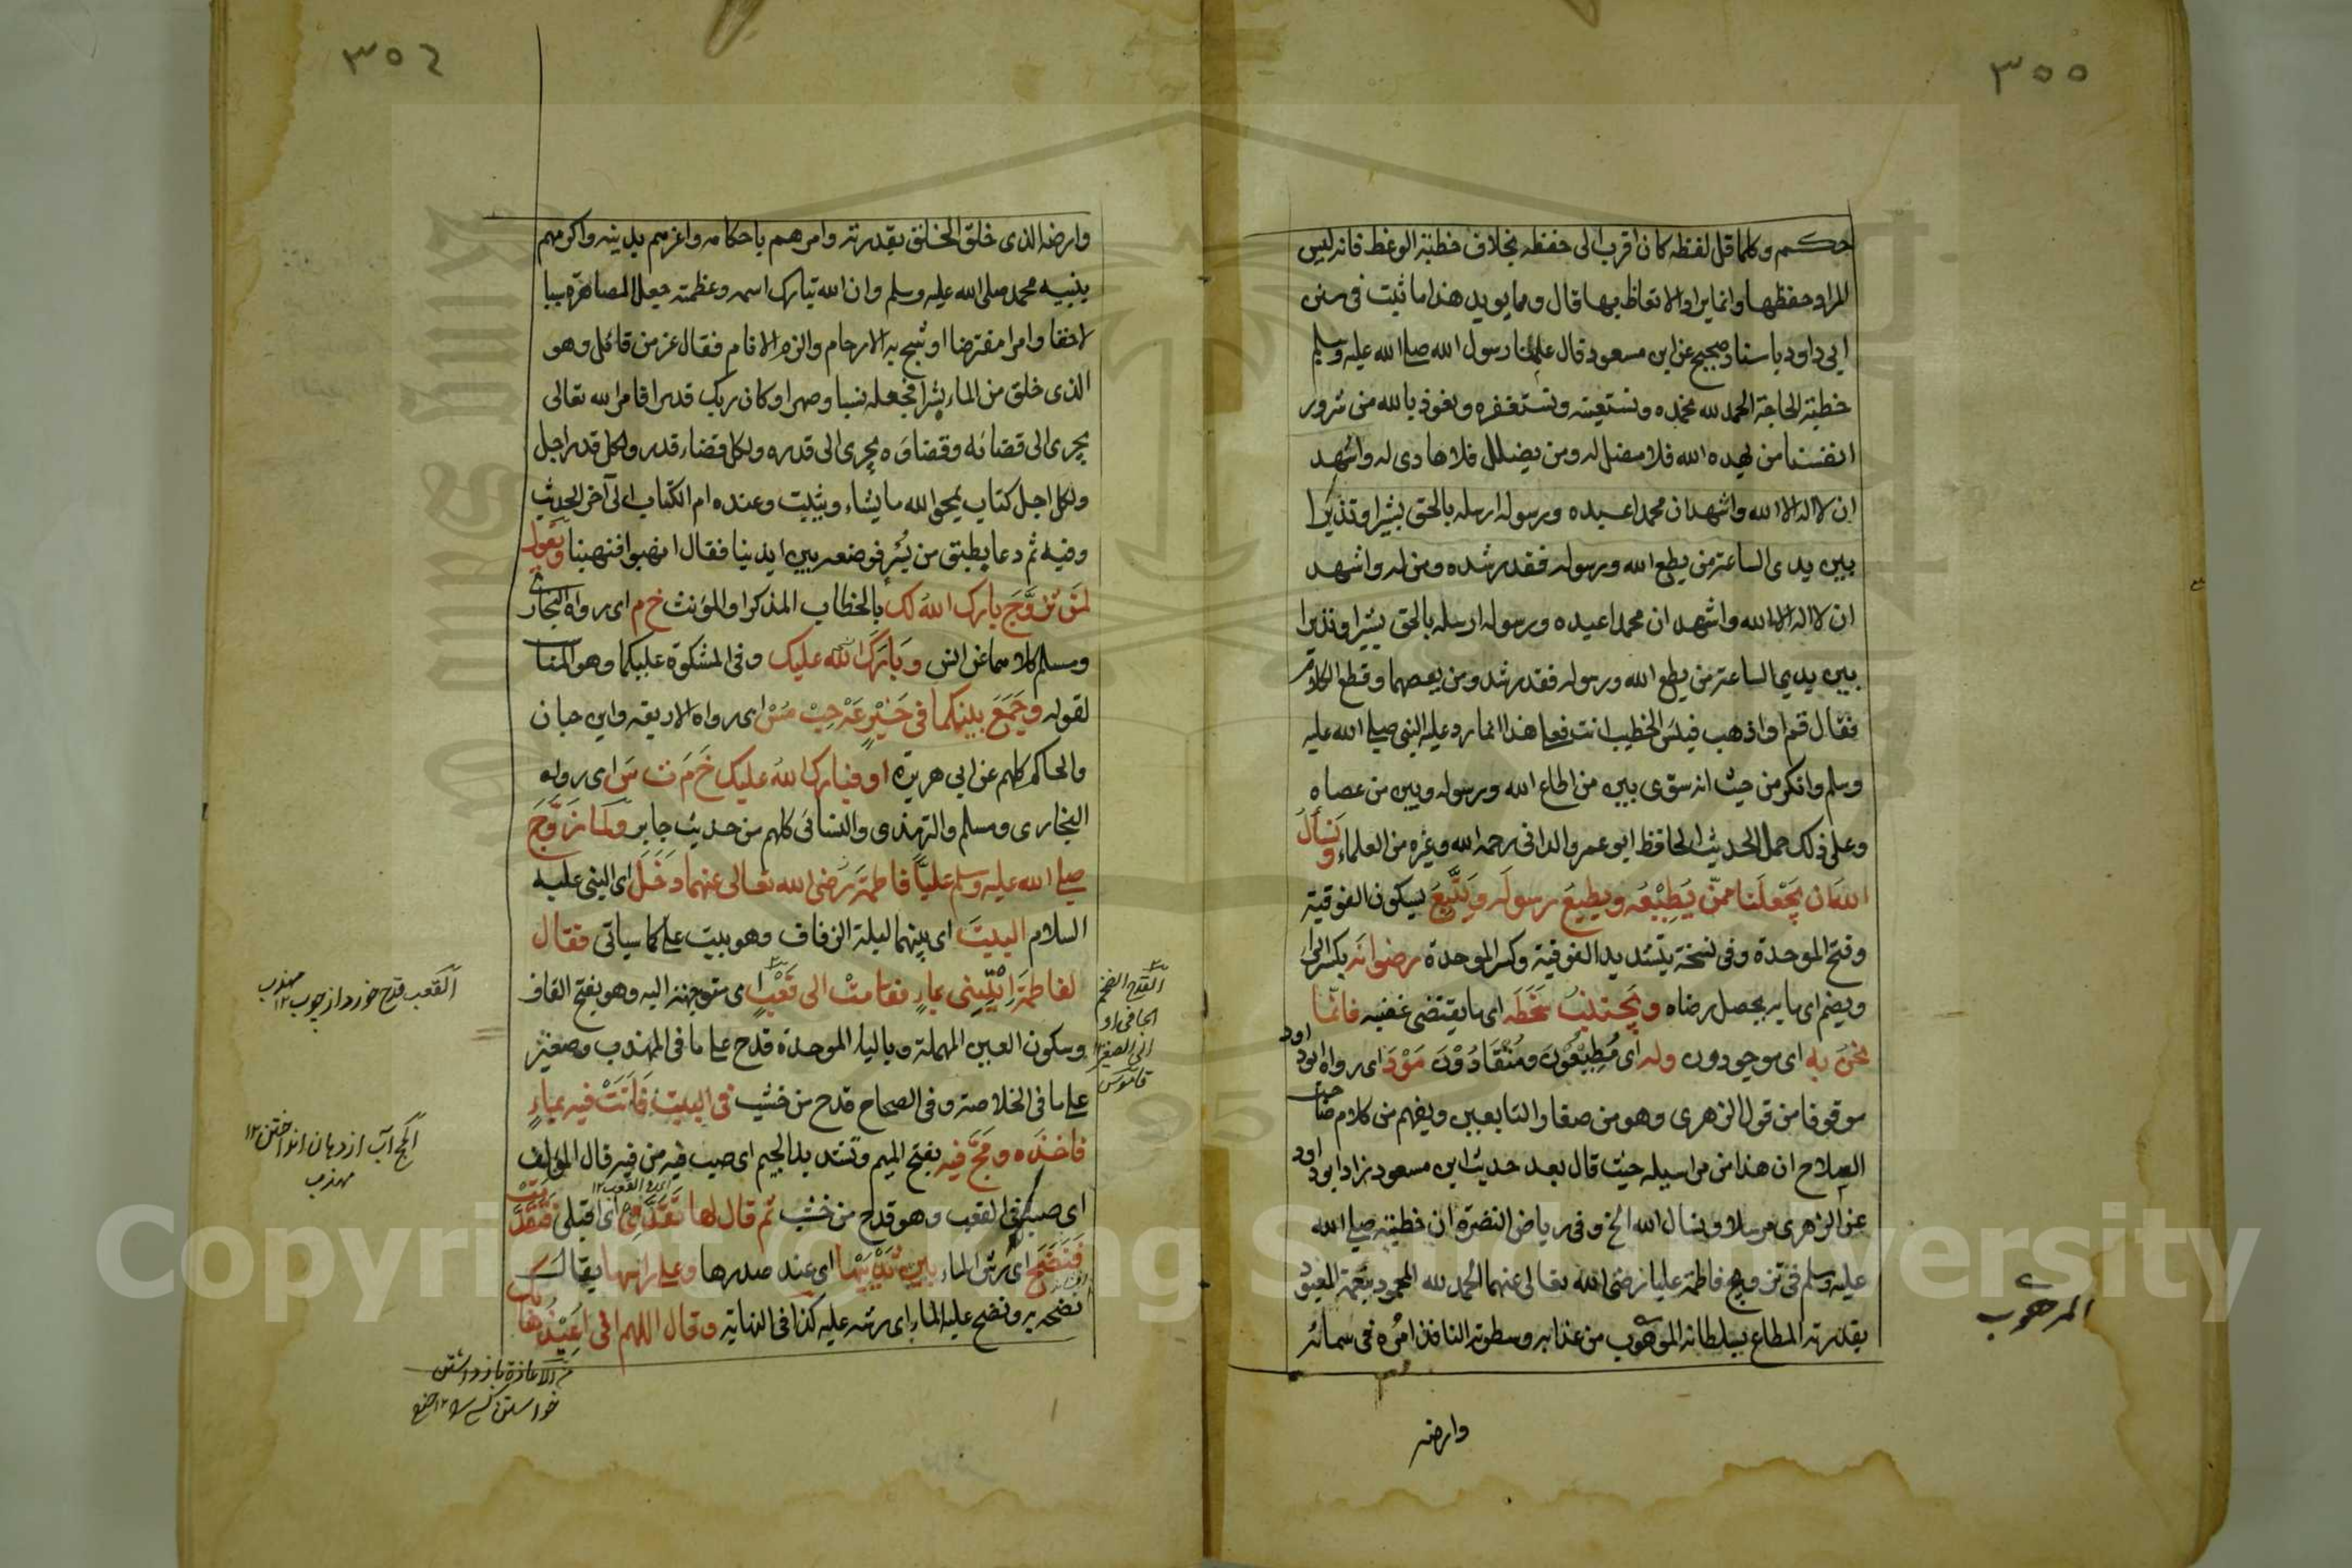 ٣٥٥
حكم وكلما قل لفظه كان اقرب الى حفظه بخلاف خطبة الوعظ فانه ليس
المراد حفظها وانما يراد الاتعاظ بها قال ومما يويد هذا ما ثبت فى سنن
ابى داود باسناد صحيح عن ابن مسعود قال علمنا رسول الله صلے الله عليه وسلم
خطبة الحاجة الحمد لله نحمده ونستعينه ونستغفره ونعوذ بالله من شرور
انفسنا من يهده الله فلا مضل له ومن يضلل فلا هادى له واشهد
ان لا اله الا الله واشهد ان محمدا عبده ورسوله ارسله بالحق بشيرا ونذيرا
بين يدى الساعة من يطع الله ورسوله فقد رشده ومن له واشهد
ان لا اله الا الله واشهد ان محمدا عبده ورسوله ارسله بالحق بشيرا ونذيرا
بين يدى الساعة من يطع الله ورسوله فقد رشد ومن يعصهما وقطع الكلام
فقال قم او اذهب فبئس الخطيب انت فهذا انما رد عليه النبى صلے الله عليه
وسلم وانكر من حيث انه سوّى بين من اطاع الله ورسوله وبين من عصاه
وعلى ذلك حمل الحديث الحافظ ابو عمرو الدانى رحمه الله وغيره من العلماء ونسأل
الله ان يجعلنا ممن يطيعه ويطيع رسوله ويتبع بسكون الفوقية
وفتح الموحدة وفى نسخة بتشديد الفوقية وكسر الموحدة رضوانه بكسر الرا
ويضم اى ما يه يحصل رضاه ويجتنب سخطه اى ما يقتضى غضبه فانما
نحن به اى موجودون وله اى مطيعون ومنقادون مو د اى رواه ابو داود
موقوفا من قول الزهرى وهو من صغار التابعين ويفهم من كلام صاحب
السلاح ان هذا من مراسيله حيث قال بعد حديث ابن مسعود زاد ابو داود
عن الزهرى مرسلا ونسال الله الخ وفى رياض النضرة ان خطبته صلے الله
عليه وسلم فى تزويج فاطمة عليا رضى الله تعالى عنهما الحمد لله المحمود بنعمة المعبود
بقدرته المطاع بسلطانه الموهوب من عذابه وسطوته النافذ امره فى سمائه
المرهوب
وارضه
٣٥٦
وارضه الذى خلق الخلق بقدرته وامرهم باحكامه واعزهم بدينه واكرمهم
بنبيه محمد صلى الله عليه وسلم وان الله تبارك اسمه وعظمته جعل المصاهرة سببا
لاحقا وامرا مفترضا اوشج به الارحام والزم الانام فقال عز من قائل وهو
الذى خلق من الماء بشرا فجعله نسبا وصهرا وكان ربك قديرا فامر الله تعالى
يجرى الى قضائه وقضاؤه يجرى الى قدره ولكل قضاء قدر ولكل قدر اجل
ولكل اجل كتاب يمحو الله ما يشاء ويثبت وعنده ام الكتاب الى آخر الحديث
وفيه ثم دعا بطبق من بسر فوضعه بين ايدينا فقال انهبوا فنهبنا ويقول
لمن تزوج بارك الله لك بالخطاب المذكر او المؤنث خ م اى رواه البخارى
ومسلم كلاهما عن انس وبارك الله عليك وفى المشكوة عليكما وهو المناسب
لقوله وجمع بينكما فى خير عه حب مس اى رواه الاربعة وابن حبان
والحاكم كلهم عن ابى هريرة او فبارك الله عليك خ م ت س اى رواه
البخارى ومسلم والترمذى والنسائى كلهم من حديث جابر ولما زوج
صلے الله عليه وسلم عليا فاطمة رضى الله تعالى عنهما دخل اى النبى عليه
السلام البيت اى بيتهما ليلة الزفاف وهو بيت على كما سياتى فقال
لفاطمة ائتينى بماء فقامت الى قعب اى متوجهة اليه وهو بفتح القاف
وسكون العين المهملة وبالباء الموحدة قدح على ما فى المهذب وصغير
على ما فى الخلاصة وفى الصحاح قدح من خشب فى البيت فاتت فيه بماء
فاخذه ومج فيه بفتح الميم وتشديد الجيم اى صب فيه من فيه قال المؤلف
اى صبه فى القعب وهو قدح من خشب ثم قال لها تقدمى اى اقبلى فتقدمت
فنضح اى رش الماء بين ثدييها اى عند صدرها وعلى راسها يقال
نضحه به ونضح عليه الماء اى رشه عليه كذا فى النهاية وقال اللهم انى اعيذها بك
القدح الضخم
الجافى او
الى الصغر
قاموس
القعب قدح خورد از چوب ١٢ مهذب
المج آب از دهان انداختن ١٢
مهذب
اى فى القعب ١٢
من الاعاذة باز داشتن
Copyright © King Saud University